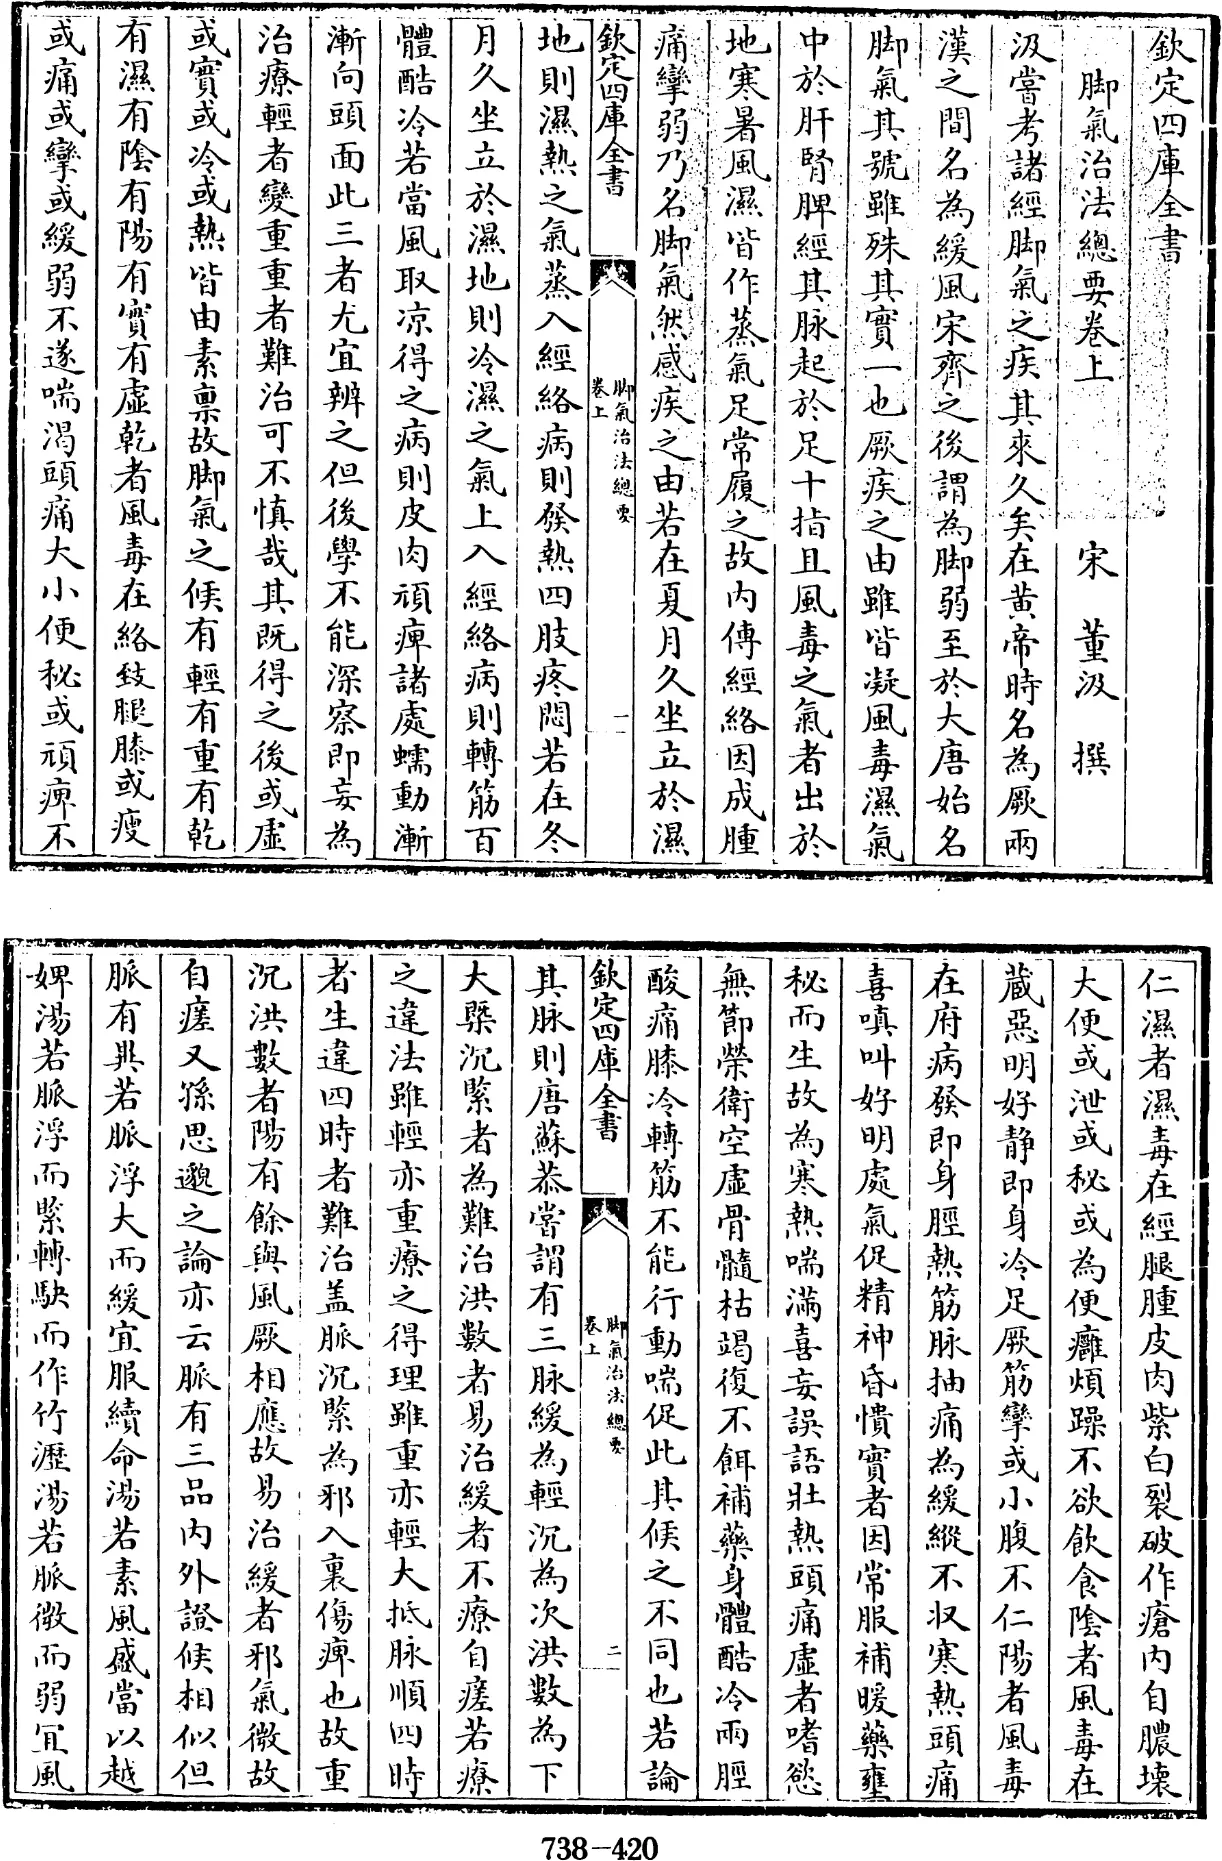 欽定四庫全書
脚氣治法總要卷上
宋 董汲 撰
汲嘗考諸經脚氣之疾其來久矣在黄帝時名為厥兩
漢之間名為緩風宋齊之後謂為脚弱至於大唐始名
脚氣其號雖殊其實一也厥疾之由雖皆凝風毒濕氣
中於肝腎脾經其脉起於足十指且風毒之氣者出於
地寒暑風濕皆作蒸氣足常履之故内傳經絡因成腫
痛攣弱乃名脚氣然感疾之由若在夏月久坐立於濕
欽定四庫全書
脚氣治法總要
卷上
一
地則濕熱之氣蒸入經絡病則發熱四肢疼悶若在冬
月久坐立於濕地則冷濕之氣上入經絡病則轉筋百
體酷冷若當風取凉得之病則皮肉頑痺諸處蠕動漸
漸向頭面此三者尤宜辨之但後學不能深察即妄為
治療輕者變重重者難治可不慎哉其既得之後或虛
或實或冷或熱皆由素禀故脚氣之候有輕有重有乾
有濕有陰有陽有實有虛乾者風毒在絡致腿膝或瘦
或痛或攣或緩弱不遂喘渴頭痛大小便秘或頑痺不
仁濕者濕毒在經腿腫皮肉紫白裂破作瘡内自膿壊
大便或泄或秘或為便癰煩躁不欲飲食陰者風毒在
蔵惡明好静即身冷足厥筋攣或小腹不仁陽者風毒
在府病發即身脛熱筋脉抽痛為緩縱不収寒熱頭痛
喜嗔叫好明處氣促精神昏憒實者因常服補暖藥壅
秘而生故為寒熱喘滿喜妄誤語壯熱頭痛虛者嗜慾
無節榮衛空虛骨髓枯竭復不餌補藥身體酷冷兩脛
酸痛膝冷轉筋不能行動喘促此其候之不同也若論
欽定四庫全書
脚氣治法總要
卷上
二
其脉則唐蘇恭嘗謂有三脉緩為輕沉為次洪數為下
大槩沉緊者為難治洪數者易治緩者不療自瘥若療
之違法雖輕亦重療之得理雖重亦輕大抵脉順四時
者生違四時者難治盖脈沉緊為邪入裏傷痺也故重
沉洪數者陽有餘與風厥相應故易治緩者邪氣微故
自瘥又孫思邈之論亦云脈有三品内外證候相似但
脈有異若脈浮大而緩宜服續命湯若素風盛當以越
婢湯若脈浮而緊轉駃而作竹瀝湯若脈微而弱宜風
738-420